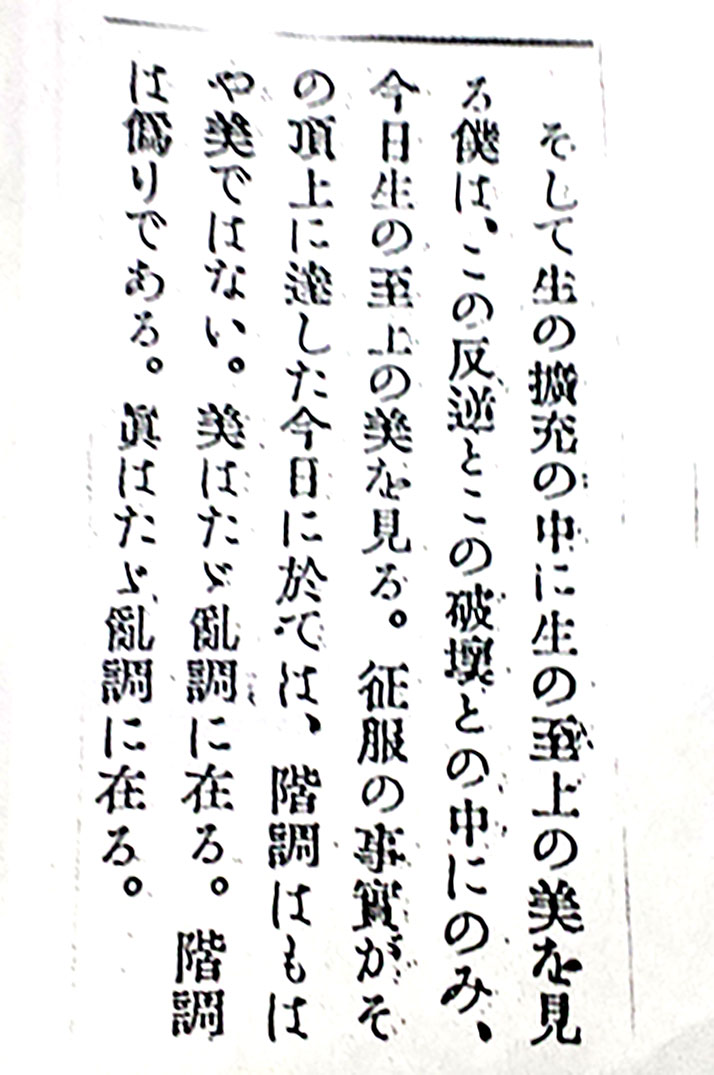 そして生の擴充の中に生の至上の美を見
る僕は、この反逆とこの破壞との中にのみ、
今日生の至上の美を見る。征服の事實がそ
の頂上に達した今日に於ては、階調はもは
や美ではない。美はたゞ亂調に在る。階調
は僞りである。眞はたゞ亂調に在る。